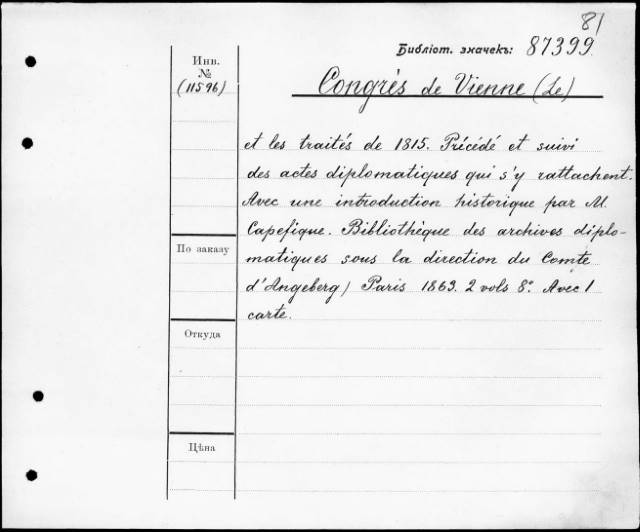 81
Библіот. значекъ: 87399
Инв.
№
(11596)
Congrès de Vienne (Le)
et les traités de 1815. Précédé et suivi
des actes diplomatiques qui s'y rattachent.
Avec une introduction historique par M.
Capefigue. Bibliothèque des archives diplo-
matiques sous la direction du Comte
d'Angeberg) Paris 1863. 2 vols 8°. Avec 1
carte.
По заказу
Откуда
Цѣна